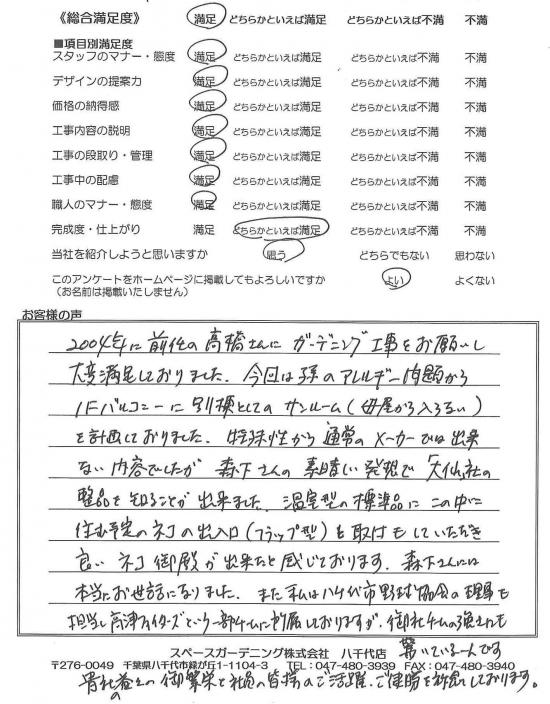 《総合満足度》 満足 どちらかといえば満足 どちらかといえば不満 不満
■項目別満足度
スタッフのマナー・態度 満足 どちらかといえば満足 どちらかといえば不満 不満
デザインの提案力 満足 どちらかといえば満足 どちらかといえば不満 不満
価格の納得感 満足 どちらかといえば満足 どちらかといえば不満 不満
工事内容の説明 満足 どちらかといえば満足 どちらかといえば不満 不満
工事の段取り・管理 満足 どちらかといえば満足 どちらかといえば不満 不満
工事中の配慮 満足 どちらかといえば満足 どちらかといえば不満 不満
職人のマナー・態度 満足 どちらかといえば満足 どちらかといえば不満 不満
完成度・仕上がり 満足 どちらかといえば満足 どちらかといえば不満 不満
当社を紹介しようと思いますか 思う どちらでもない 思わない
このアンケートをホームページに掲載してもよろしいですか よい よくない
(お名前は掲載いたしません)
お客様の声
2004年に前任の高橋さんにガーデニング工事をお願いし
大変満足しておりました。今回は孫のアレルギー問題から
1Fバルコニーに別棟としてのサンルーム(母屋から入らない)
を計画しておりました。特殊性から通常のメーカーでは出来
ない内容でしたが森下さんの素晴しい発想で大仙社の
製品を知ることが出来ました。温室型の標準品にこの中に
住む予定のネコの出入口(フラップ型)も取付もしていただき
良いネコ御殿が出来たと感じております。森下さんには
本当にお世話になりました。また私は八千代市野球協会の理事も
担当し高津ファイターズという一部チームに所属しておりますが、御社チームの強さにも
驚いている一人です
スペースガーデニング株式会社 八千代店
〒276-0049 千葉県八千代市緑が丘1-1104-3 TEL:047-480-3939 FAX:047-480-3940
貴社益々の御繁栄と社員の皆様のご活躍、ご健勝を祈念しております。